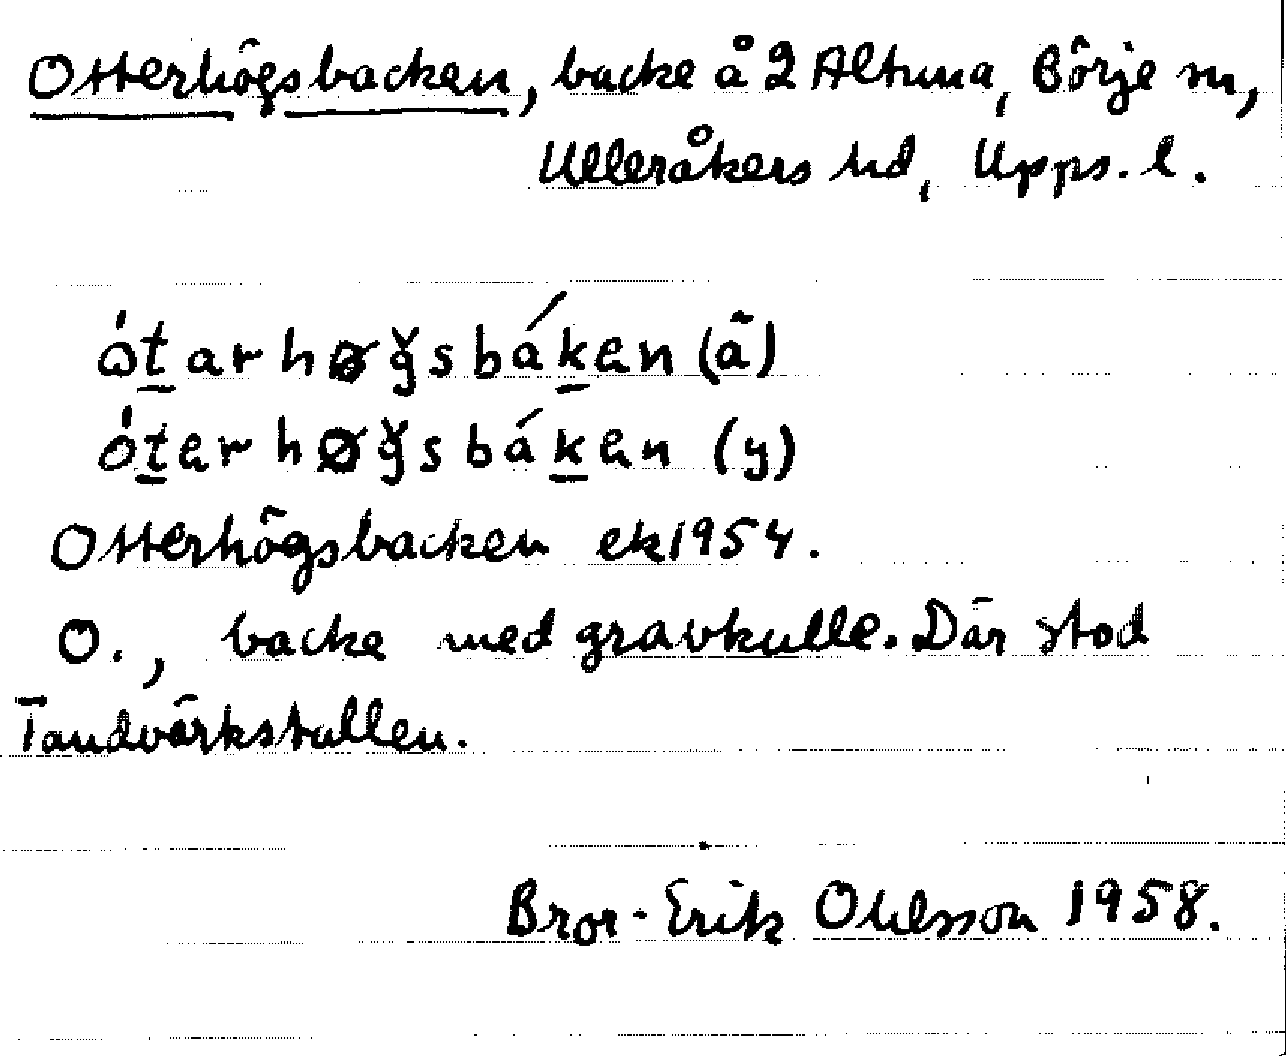 Otterhögsbacken, backe å 2 Altuna, Börje sn,
Ulleråkers hd, Upps. l.
ót̲arhøğsbák̲en (ä)
ót̲erhøğsbák̲en (y)
Otterhögsbacken ek 1954.
O., backe med gravkulle. Där stod
Tandvärkstallen.
Bror-Erik Ohlsson 1958.